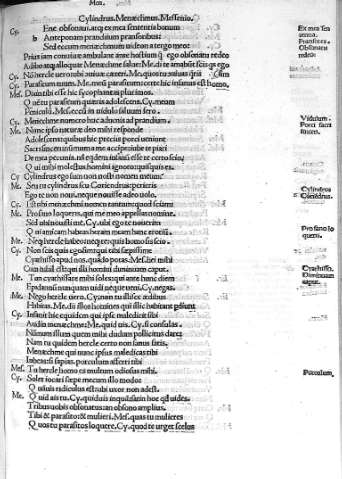 Men.
Cylindrus. Menæchmus. Messenio.
Cy. Ene obsonaui, atq; ex mea sententia bonum
b Anteponam prandium pransoribus:
Sed eccum menæchmum uideo: uæ tergo meo:
Prius iam conuiuæ ambulant ante hostium q̃ ego obsonatu redeo
Adibo atq; alloquar Menæchme salue: Me. di te amabūt scis q̃s ego
Cy. Nō hercle uero ubi cōuiuæ cæteri. Me. quos tu cōuiuas q̃ris
Cy. Parasitum tuum. Me. meū parasitum certe hic insanus est homo.
Mes. Dixin tibi esse hic sycophantas plurimos.
Q uem tu parasitum quæris adolescens. Cy. meum
Peniculū. Mes. eccū in uidulo saluum fero.
Cy. Menæchme numero huc aduenis ad prandium.
Me. Nunc ipso
Adolescens: quibus hic preciis porci ueniunt
Sacres sinceri nummum a me accipe: iube te piari
De mea pecunia. nā eqdem insanū esse te certo scio,
Q ui mihi molestus homini ignoto: quisquis es.
Cy Cylindrus ego sum non nosti nomen meum:
Me. Seu tu cylindrus seu Coriendrus: perieris
Ego te non noui, neque nouisse adeo uolo.
Cy. Est tibi menæchmo nomen tantum: quod sciam
Me. Pro sano loqueris, qui me meo appellas nomine.
Sed ubi nouisti me. Cy. ubi ego te nouerim
Q ui amicam habeas heram meam hanc erotiū.
Me. Neq; hercle habeo: neq; te: quis homo sis scio
Cy. Non scis quis ego sim: qui tibi sæpissime
Cyathisso apud nos, quādo potas. Mes. hei mihi
Cum nihil est: qui illi homini diminuam caput.
Me. Tun cyathissare mihi soles: qui ante hunc diem
Epidamnū nunquam uidi neque ueni. Cy. negas.
Me. Nego hercle uero. Cy. non tu illisce ædibus
Habitas. Me. dii illos homines qui illic habitant
Cy. Insanit hic equidem qui ipse maledicit sibi
Audin menæchme: Me. quid uis. Cy. si consulas
Nūmum illum quem mihi dudum pollicitus dare:
Nam tu quidem hercle certo non sanus satis,
Menæchme qui nunc ipsus maledicas tibi
Iubeas: si sapias. porculum afferri tibi
Mes. Tu hercle homo es multum odiosus mihi.
Cy. Solet iocari sæpe mecum illo modo:
Q uāuis ridiculus est: ubi uxor non adest.
Me. Q uid ais tu. Cy. quid uis inquā: satin hoc qd uides.
Tribus uobis obsonatus: an obsono amplius.
Tibi & parasito: & mulieri. Mes. quas tu mulieres
Q uos tu parasitos loquere. Cy. quod te urget scelus
Ex mea sententia.
Pransores.
Obsonatu redeo:
Vidulum.
Porci sacri sinceri.
Cylindrus
Coriendrus.
Pro sano loqueris.
Cyathisso.
Diminuam caput.
Porculum.